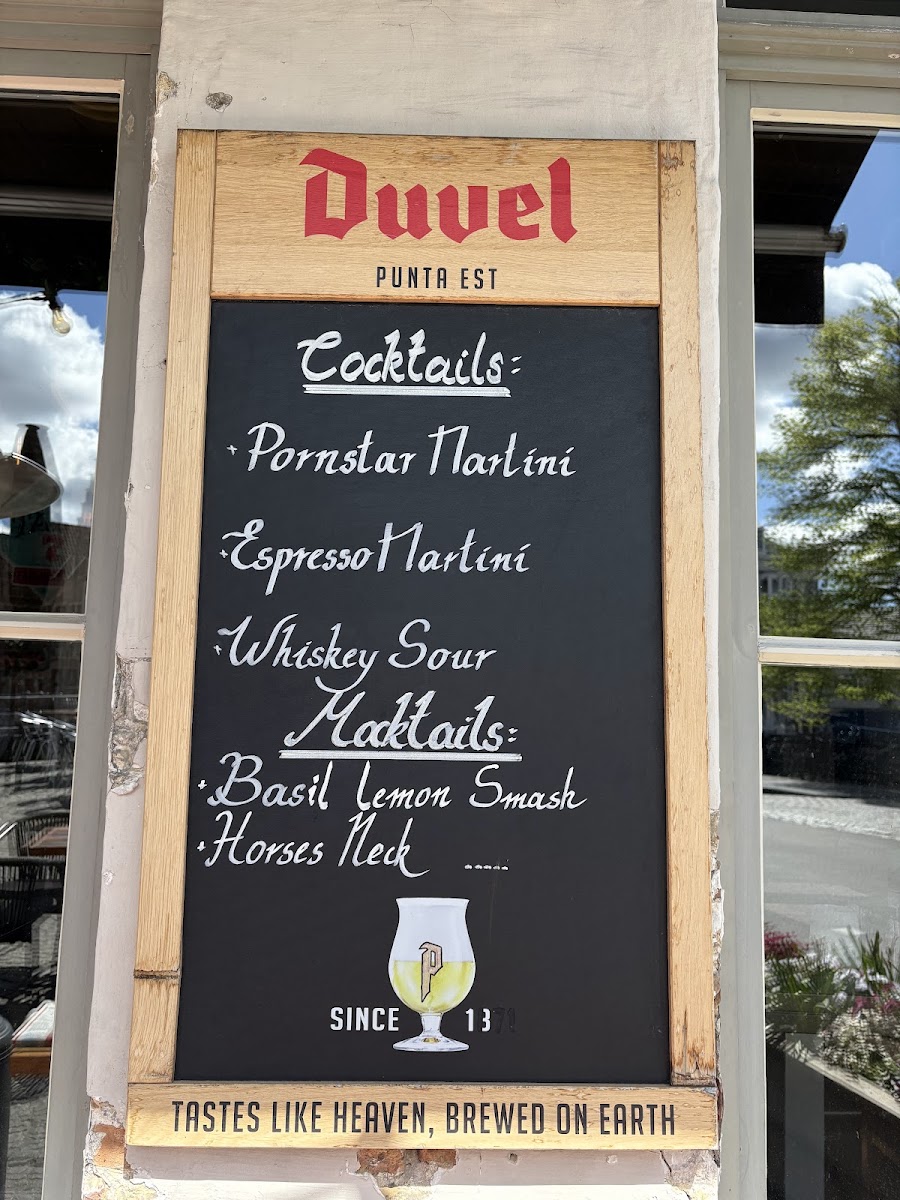 Duvel
PUNTA EST
Cocktails:
+ Pornstar Martini
+ Espresso Martini
+ Whiskey Sour
Mocktails:
+ Basil Lemon Smash
+ Horses Neck .....
P
SINCE 1871
TASTES LIKE HEAVEN, BREWED ON EARTH